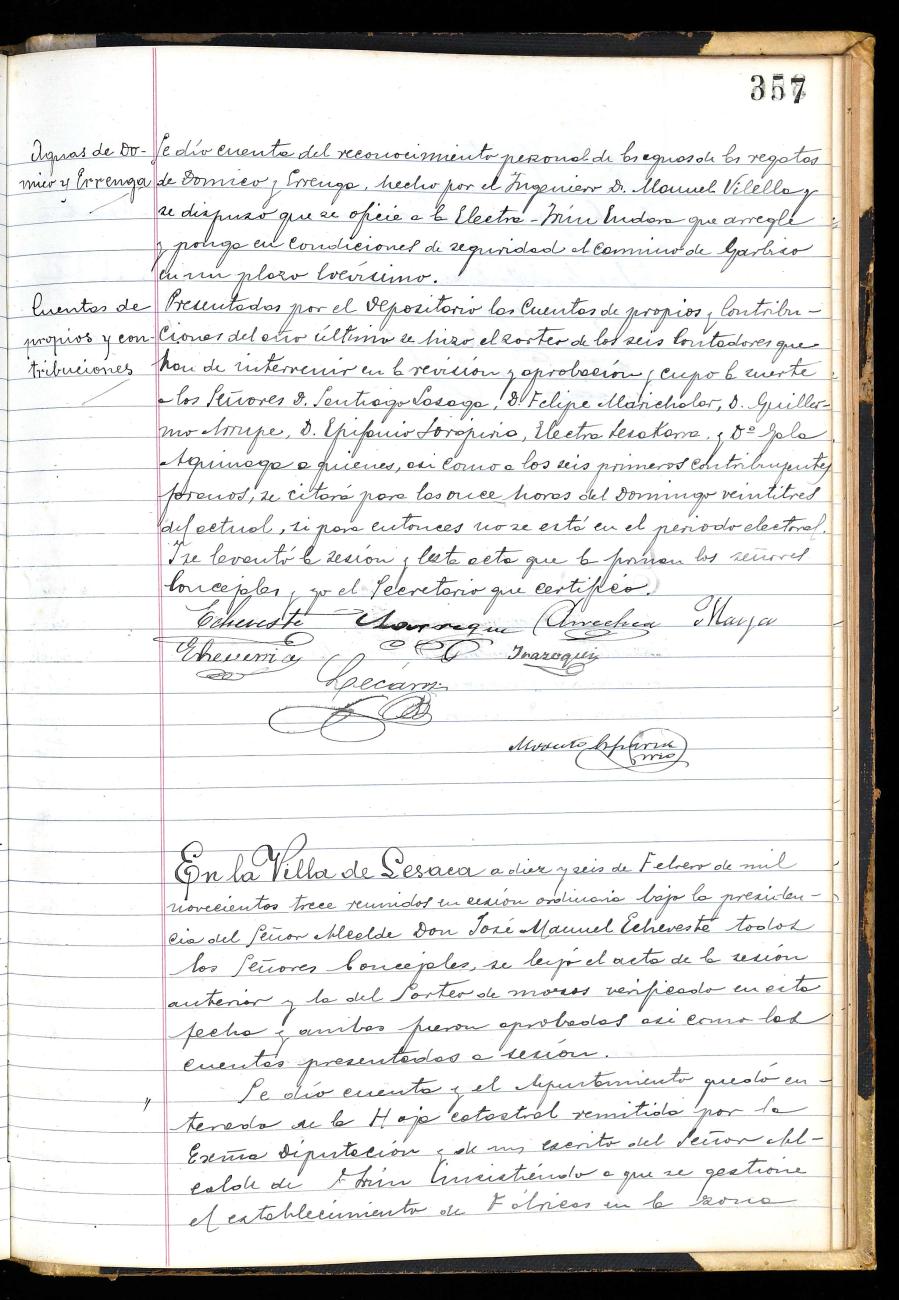 357
Aguas de Do-
mico y Errenga
Se dío cuenta del reconocimiento personal de las aguas de las regatas
de Domico y Errenga, hecho por el Ingeniero D. Manuel Vilella y
se dispuso que se oficie a la Electra-Irún Endara que arregle
y ponga en condiciones de seguridad el camino de Garbiso
en un plazo brevísimo.
Cuentas de
propios y con-
tribuciones
Presentadas por el Depositario las Cuentas de propios y Contribu-
ciones del año último se hizo el sorteo de los seis Contadores que
han de intervenir en la revisión y aprobación y cupo la suerte
a los Señores D. Santiago Sasaga, D. Felipe Marichalar, D. Guiller-
mo Arrupe, D. Epifanio Iorapiria, Electra Lesakarra y Dª Gala
Aguinaga a quienes, asi como a los seis primeros contribuyentes
foranos, se citará para las once horas del Domingo veintitres
del actual, si para entonces no se está en el periodo electoral.
Y se levantó la sesión y esta acta que la firman los señores
Concejales y yo el Secretario que certifico.
Echeveste Arrechea Maya
Echeverria Irazoqui
Lecároz
En la Villa de Lesaca a diez y seis de Febrero de mil
novecientos trece reunidos en sesión ordinaria bajo la presiden-
cia del Señor Alcalde Don José Manuel Echeveste todos
los Señores Concejales, se leyó el acta de la sesión
anterior y la del Sorteo de mozos verificado en esta
fecha y ambas fueron aprobadas asi como las
cuentas presentadas a sesión.
" Se dío cuenta y el Ayuntamiento quedó en-
terado de la Hoja catastral remitida por la
Exma Diputación y de un escrito del Señor Al-
calde de Irún insistiéndo a que se gestione
el establecimiento de Fábricas en la zona